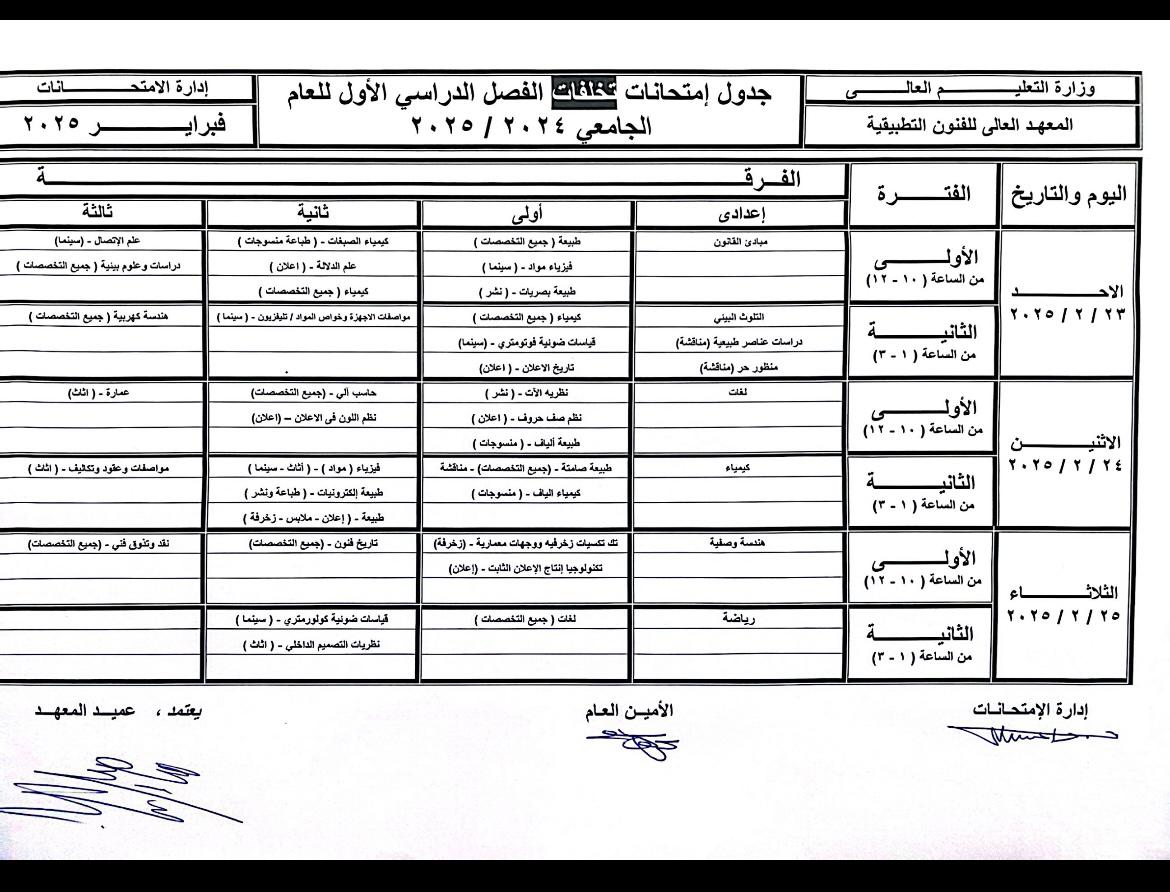 وزارة التعليـــــــــم العالــــى
المعهد العالى للفنون التطبيقية
جدول إمتحانات تخلفات الفصل الدراسي الأول للعام
الجامعي ٢٠٢٤ / ٢٠٢٥
إدارة الامتحـــــــــانات
فبرايـــــــر ٢٠٢٥
اليوم والتاريخ
الفتـــــــرة
الفـرقـــــــــــــــــــــة
إعدادى
أولى
ثانية
ثالثة
الاحـــــــــد
٢٠٢٥ / ٢ / ٢٣
الأولـــــــــى
من الساعة ( ١٠ - ١٢)
مبادئ القانون
طبيعة ( جميع التخصصات )
كيمياء الصبغات - ( طباعة منسوجات )
علم الإتصال - (سينما)
فيزياء مواد - ( سينما )
علم الدلالة - ( اعلان )
دراسات وعلوم بينية ( جميع التخصصات )
طبيعة بصريات - ( نشر )
كيمياء ( جميع التخصصات )
الثانيـــــــــة
من الساعة ( ١ - ٣)
التلوث البيئي
كيمياء ( جميع التخصصات )
مواصفات الاجهزة وخواص المواد / تليفزيون - ( سينما )
هندسة كهربية ( جميع التخصصات )
دراسات عناصر طبيعية (مناقشة)
قياسات ضوئية فوتومتري - (سينما)
منظور حر (مناقشة)
تاريخ الاعلان - ( اعلان)
الاثنيـــــــــن
٢٠٢٥ / ٢ / ٢٤
الأولـــــــــى
من الساعة ( ١٠ - ١٢)
لغات
نظريه الآت - ( نشر )
حاسب آلي - (جميع التخصصات)
عمارة - ( اثاث)
نظم صف حروف - ( اعلان )
نظم اللون فى الاعلان – (اعلان)
طبيعة ألياف - ( منسوجات )
الثانيـــــــــة
من الساعة ( ١ - ٣)
كيمياء
طبيعة صامتة - (جميع التخصصات) - مناقشة
فيزياء ( مواد ) - ( أثاث - سينما )
مواصفات وعقود وتكاليف - ( اثاث )
كيمياء الياف - ( منسوجات )
طبيعة إلكترونيات - ( طباعة ونشر )
طبيعة - ( إعلان - ملابس - زخرفة )
الثلاثـــــــــاء
٢٠٢٥ / ٢ / ٢٥
الأولـــــــــى
من الساعة ( ١٠ - ١٢)
هندسة وصفية
تك تكسيات زخرفيه ووجهات معمارية - (زخرفة)
تاريخ فنون - (جميع التخصصات)
نقد وتذوق فني - (جميع التخصصات)
تكنولوجيا إنتاج الإعلان الثابت - (إعلان)
الثانيـــــــــة
من الساعة ( ١ - ٣)
رياضة
لغات ( جميع التخصصات )
قياسات ضوئية كولورمتري - ( سينما )
نظريات التصميم الداخلي - ( اثاث )
إدارة الإمتحـانـات
الأميـن العـام
يعتمد ، عميـد المعهـد